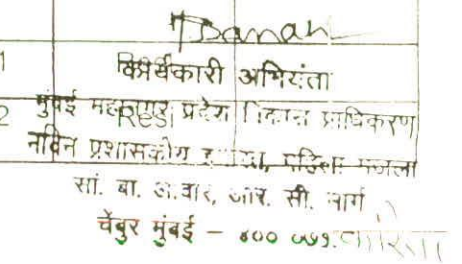 1
कार्यकारी अभियंता
2 मुंबई महानगर प्रदेश विकास प्राधिकरण
Resi
नविन प्रशासकीय इमारत, पहिला मजला
सां. बा. आवार, आर. सी. मार्ग
चेंबुर मुंबई - ४०० ०७१.